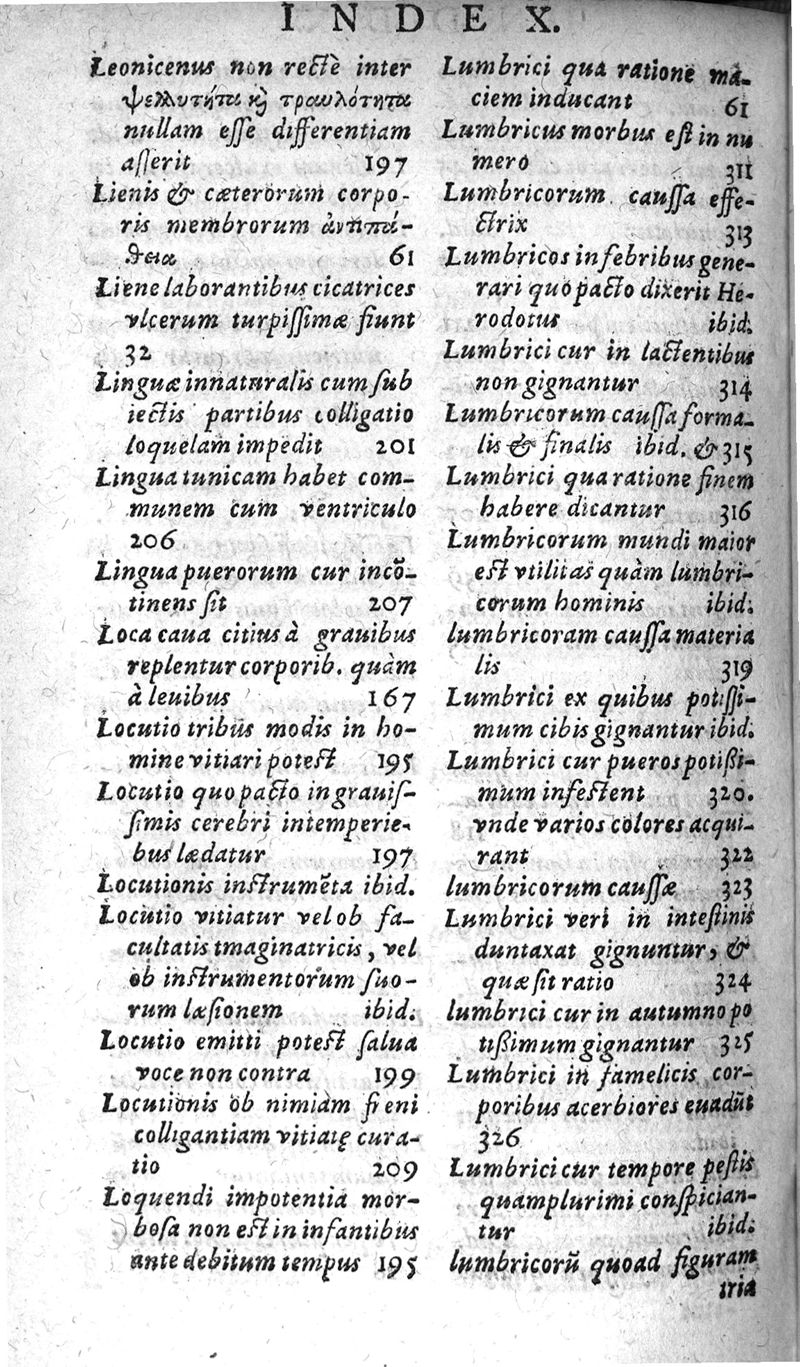 INDEX.
Leonicenus non rectè inter
ψελλυτήτα κὶ τραυλότητα
nullam esse differentiam
asserit 197
Lienis & cæterorum corpo-
ris membrorum ἀντιπά-
θεια 61
Liene laborantibus cicatrices
vlcerum turpissimæ fiunt
32
Linguæ innaturalis cum sub
iectis partibus colligatio
loquelam impedit 201
Lingua tunicam habet com-
munem cum ventriculo
206
Lingua puerorum cur incō-
tinens sit 207
Loca caua citius à grauibus
replentur corporib. quàm
à leuibus 167
Locutio tribus modis in ho-
mine vitiari potest 195
Locutio quo pacto in grauis-
simis cerebri intemperie-
bus lædatur 197
Locutionis instrumēta ibid.
Locutio vitiatur vel ob fa-
cultatis imaginatricis, vel
ob instrumentorum suo-
rum læsionem ibid.
Locutio emitti potest salua
voce non contra 199
Locutionis ob nimiam freni
colligantiam vitiatę cura-
tio 209
Loquendi impotentia mor-
bosa non est in infantibus
ante debitum tempus 195
Lumbrici qua ratione ma-
ciem inducant 61
Lumbricus morbus est in nu
mero 311
Lumbricorum caussa effe-
ctrix 313
Lumbricos in febribus gene-
rari quo pacto dixerit He-
rodotus ibid.
Lumbrici cur in lactentibus
non gignantur 314
Lumbricorum caussa forma-
lis & finalis ibid. & 315
Lumbrici qua ratione finem
habere dicantur 316
Lumbricorum mundi maior
est vtilitas quàm lumbri-
corum hominis ibid.
lumbricoram caussa materia
lis 319
Lumbrici ex quibus potissi-
mum cibis gignantur ibid.
Lumbrici cur pueros potißi-
mum infestent 320.
vnde varios colores acqui-
rant 322
lumbricorum caussæ 323
Lumbrici veri in intestinis
duntaxat gignuntur, &
quæ sit ratio 324
lumbrici cur in autumno po
tißimum gignantur 325
Lumbrici in famelicis cor-
poribus acerbiores euadūt
326
Lumbrici cur tempore pestis
quamplurimi conspician-
tur ibid.
lumbricorū quoad figuram
tria